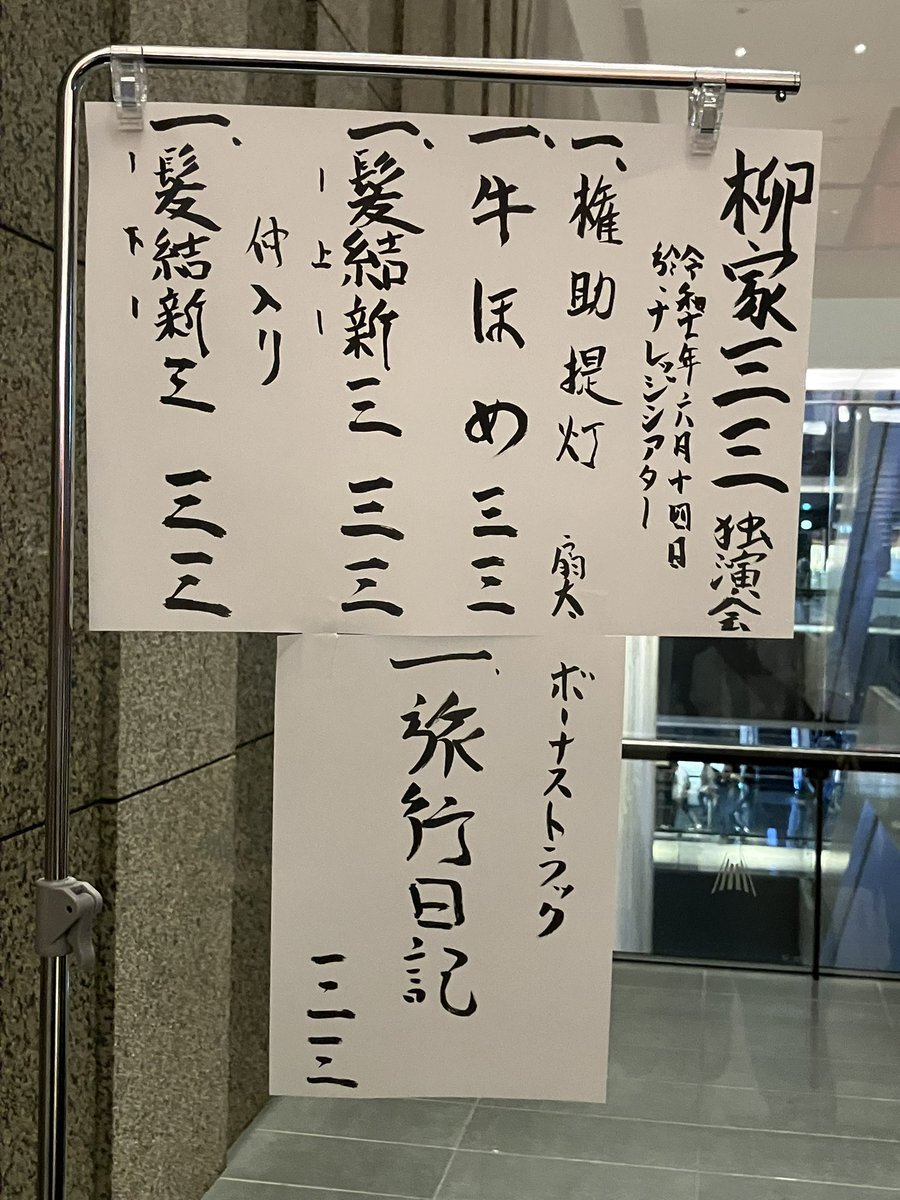 柳家三三 独演会
令和七年六月十四日
於:ナレッジシアター
一、権助提灯 扇太
一、牛ほめ 三三
一、髪結新三 三三
ー上ー
仲入り
一、髪結新三 三三
ー下ー
ボーナストラック
一、旅行日記
三三